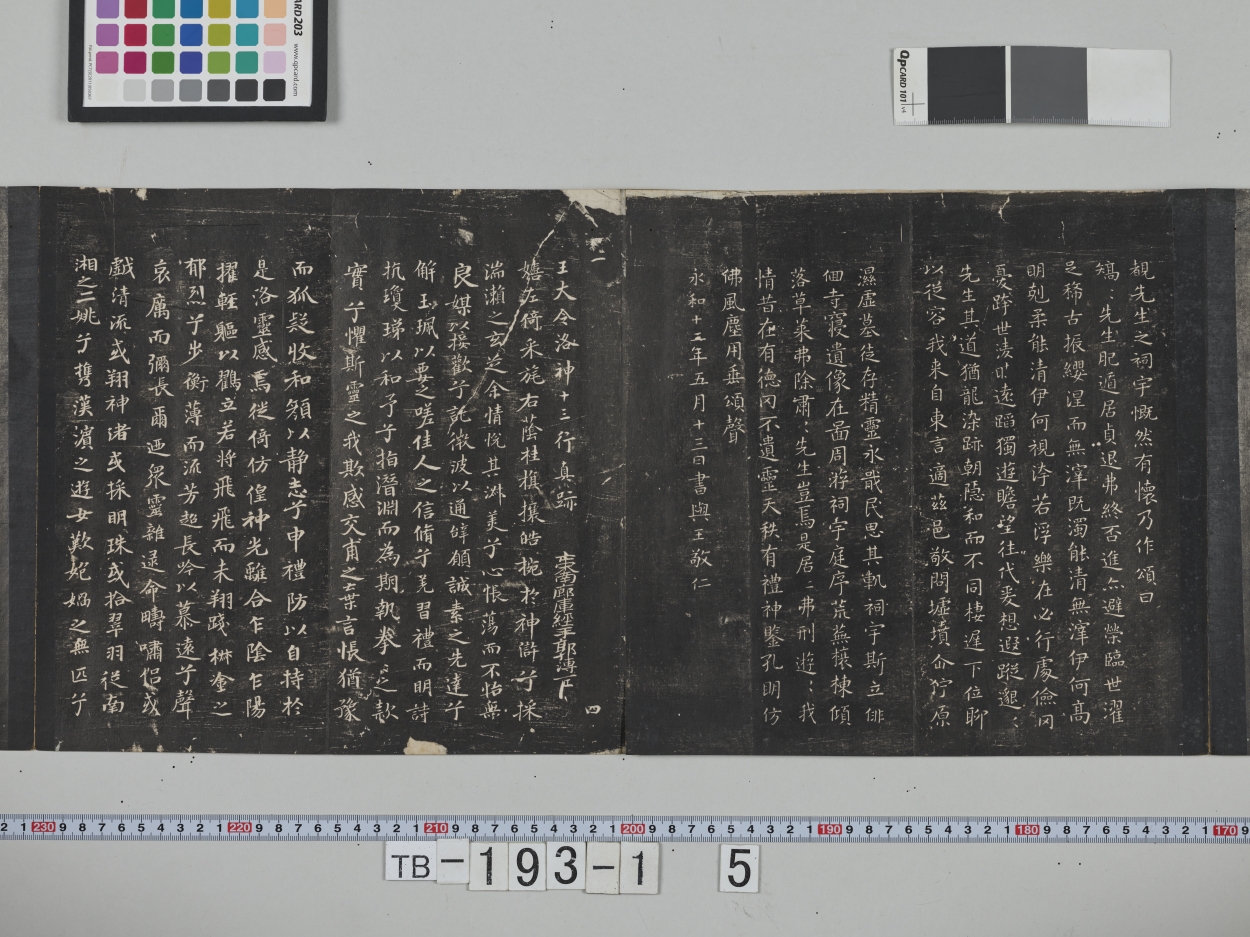 覩先生之祠宇慨然有懷乃作頌曰
矯矯先生肥遁居貞退弗終否進亦避榮臨世濯
足稀古振纓涅而無滓既濁能清無滓伊何高
明剋柔能清伊何視汙若浮樂在必行處儉罔
憂跨世淩時遠蹈獨遊瞻望往代爰想遐蹤邈邈
先生其道猶龍染跡朝隱和而不同棲遲下位聊
以從容我来自東言適茲邑敬問墟墳佇原
濕虛墓徒存精靈永戢民思其軌祠宇斯立徘
佪寺寢遺像在啚周遊祠宇庭序荒蕪榱棟傾
落草萊弗除肅肅先生豈焉是居是居弗刑遊遊我
情昔在有德罔不遺靈天秩有禮神鑒孔明仿
佛風塵用垂頌聲
永和十二年五月十三日書與王敬仁
二
王大令洛神十三行真跡
四
嬉左倚采旄右蔭桂旗攘皓捥於神滸兮採
湍瀨之玄芝余情悅其淑美兮心悵蕩而不怡無
良媒以接歡兮託微波以通辭願誠素之先達兮
解玉珮以要之嗟佳人之信脩兮羌習禮而明詩
抗瓊珶以和予兮指潛淵而為期執拳拳之款
實兮懼斯靈之我欺感交甫之棄言悵猶豫
而狐疑收和顏以静志兮申禮防以自持於
是洛靈感焉徙倚仿偟神光離合乍陰乍陽
擢輕軀以鶴立若將飛而未翔踐椒塗之
郁烈兮步衡薄而流芳超長吟以慕遠兮聲
哀厲而彌長爾迺眾靈雜遝命疇嘯侶或
戲清流或翔神渚或採明珠或拾翠羽從南
湘之二姚兮携漢濱之遊女歎炝媧之無匹兮
QPCARD 203
www.qpcard.com
QPCARD 101 v4
TB-193-1 5
230 220 210 200 190 180 170